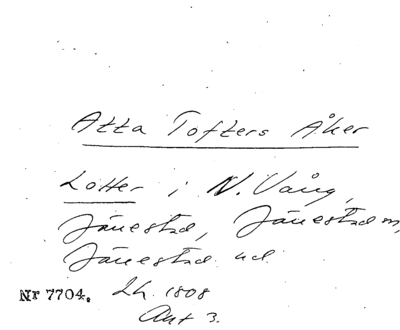 Atta Tofters Åker
Lotter i N. Vång,
Jänestad, Jänestad m,
Jänestad ud.
Nr 7704. Lh. 1808
Akt 3.